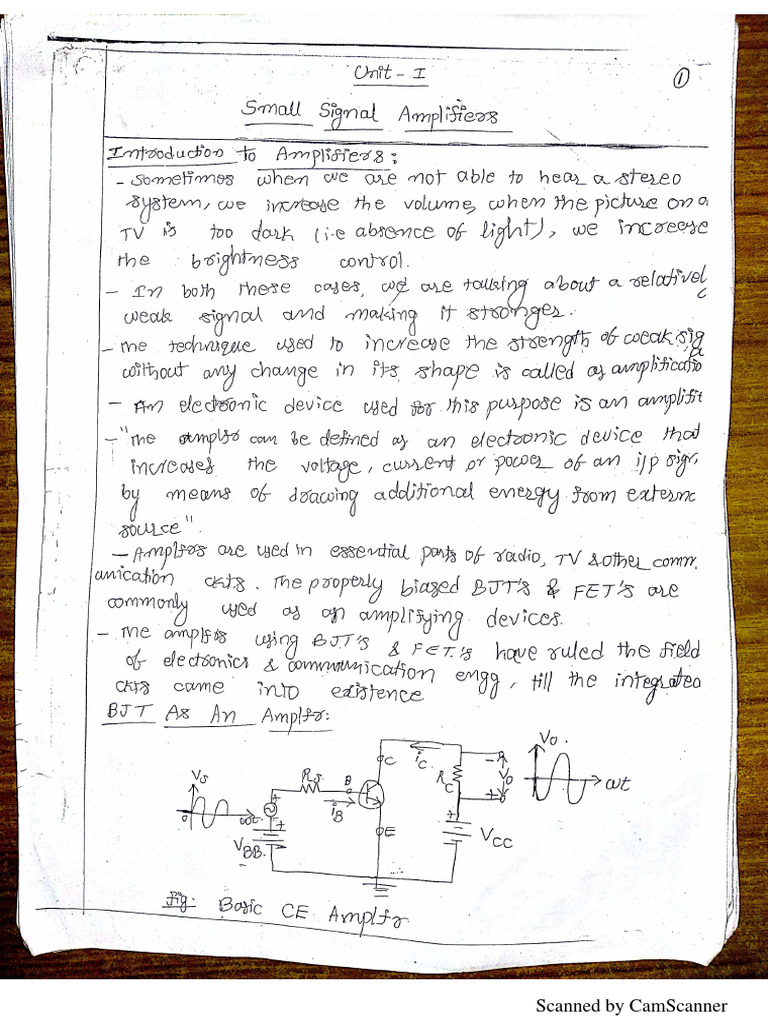 Unit - I
①
Small Signal Amplifiers
Introduction to Amplifiers:
- Sometimes when we are not able to hear a stereo
system, we increase the volume, when the picture on a
TV is too dark (i.e absence of light), we increase
the brightness control.
- In both these cases, we are talking about a relativel
weak signal and making it stronger.
- The technique used to increase the strength of weak sig
without any change in its shape is called as amplificatio
- An electronic device used for this purpose is an amplifi
- "The amplfr can be defined as an electronic device that
increases the voltage, current or power of an i/p sig
by means of drawing additional energy from extern
source".
- Amplfrs are used in essential parts of radio, TV & other comm
unication ckts. The properly biased BJT's & FET's are
commonly used as an amplifying devices.
- The amplfrs using BJT's & FET's have ruled the field
of electronics & communication engg, till the integrated
ckts came into existence
BJT As An Amplfr:
Vs
0
ωt
VBB
+
+
Rs
iB
B
C
E
iC
RC
-
Vo
+
+
VCC
Vo
ωt
fig: Basic CE Amplfr
Scanned by CamScanner